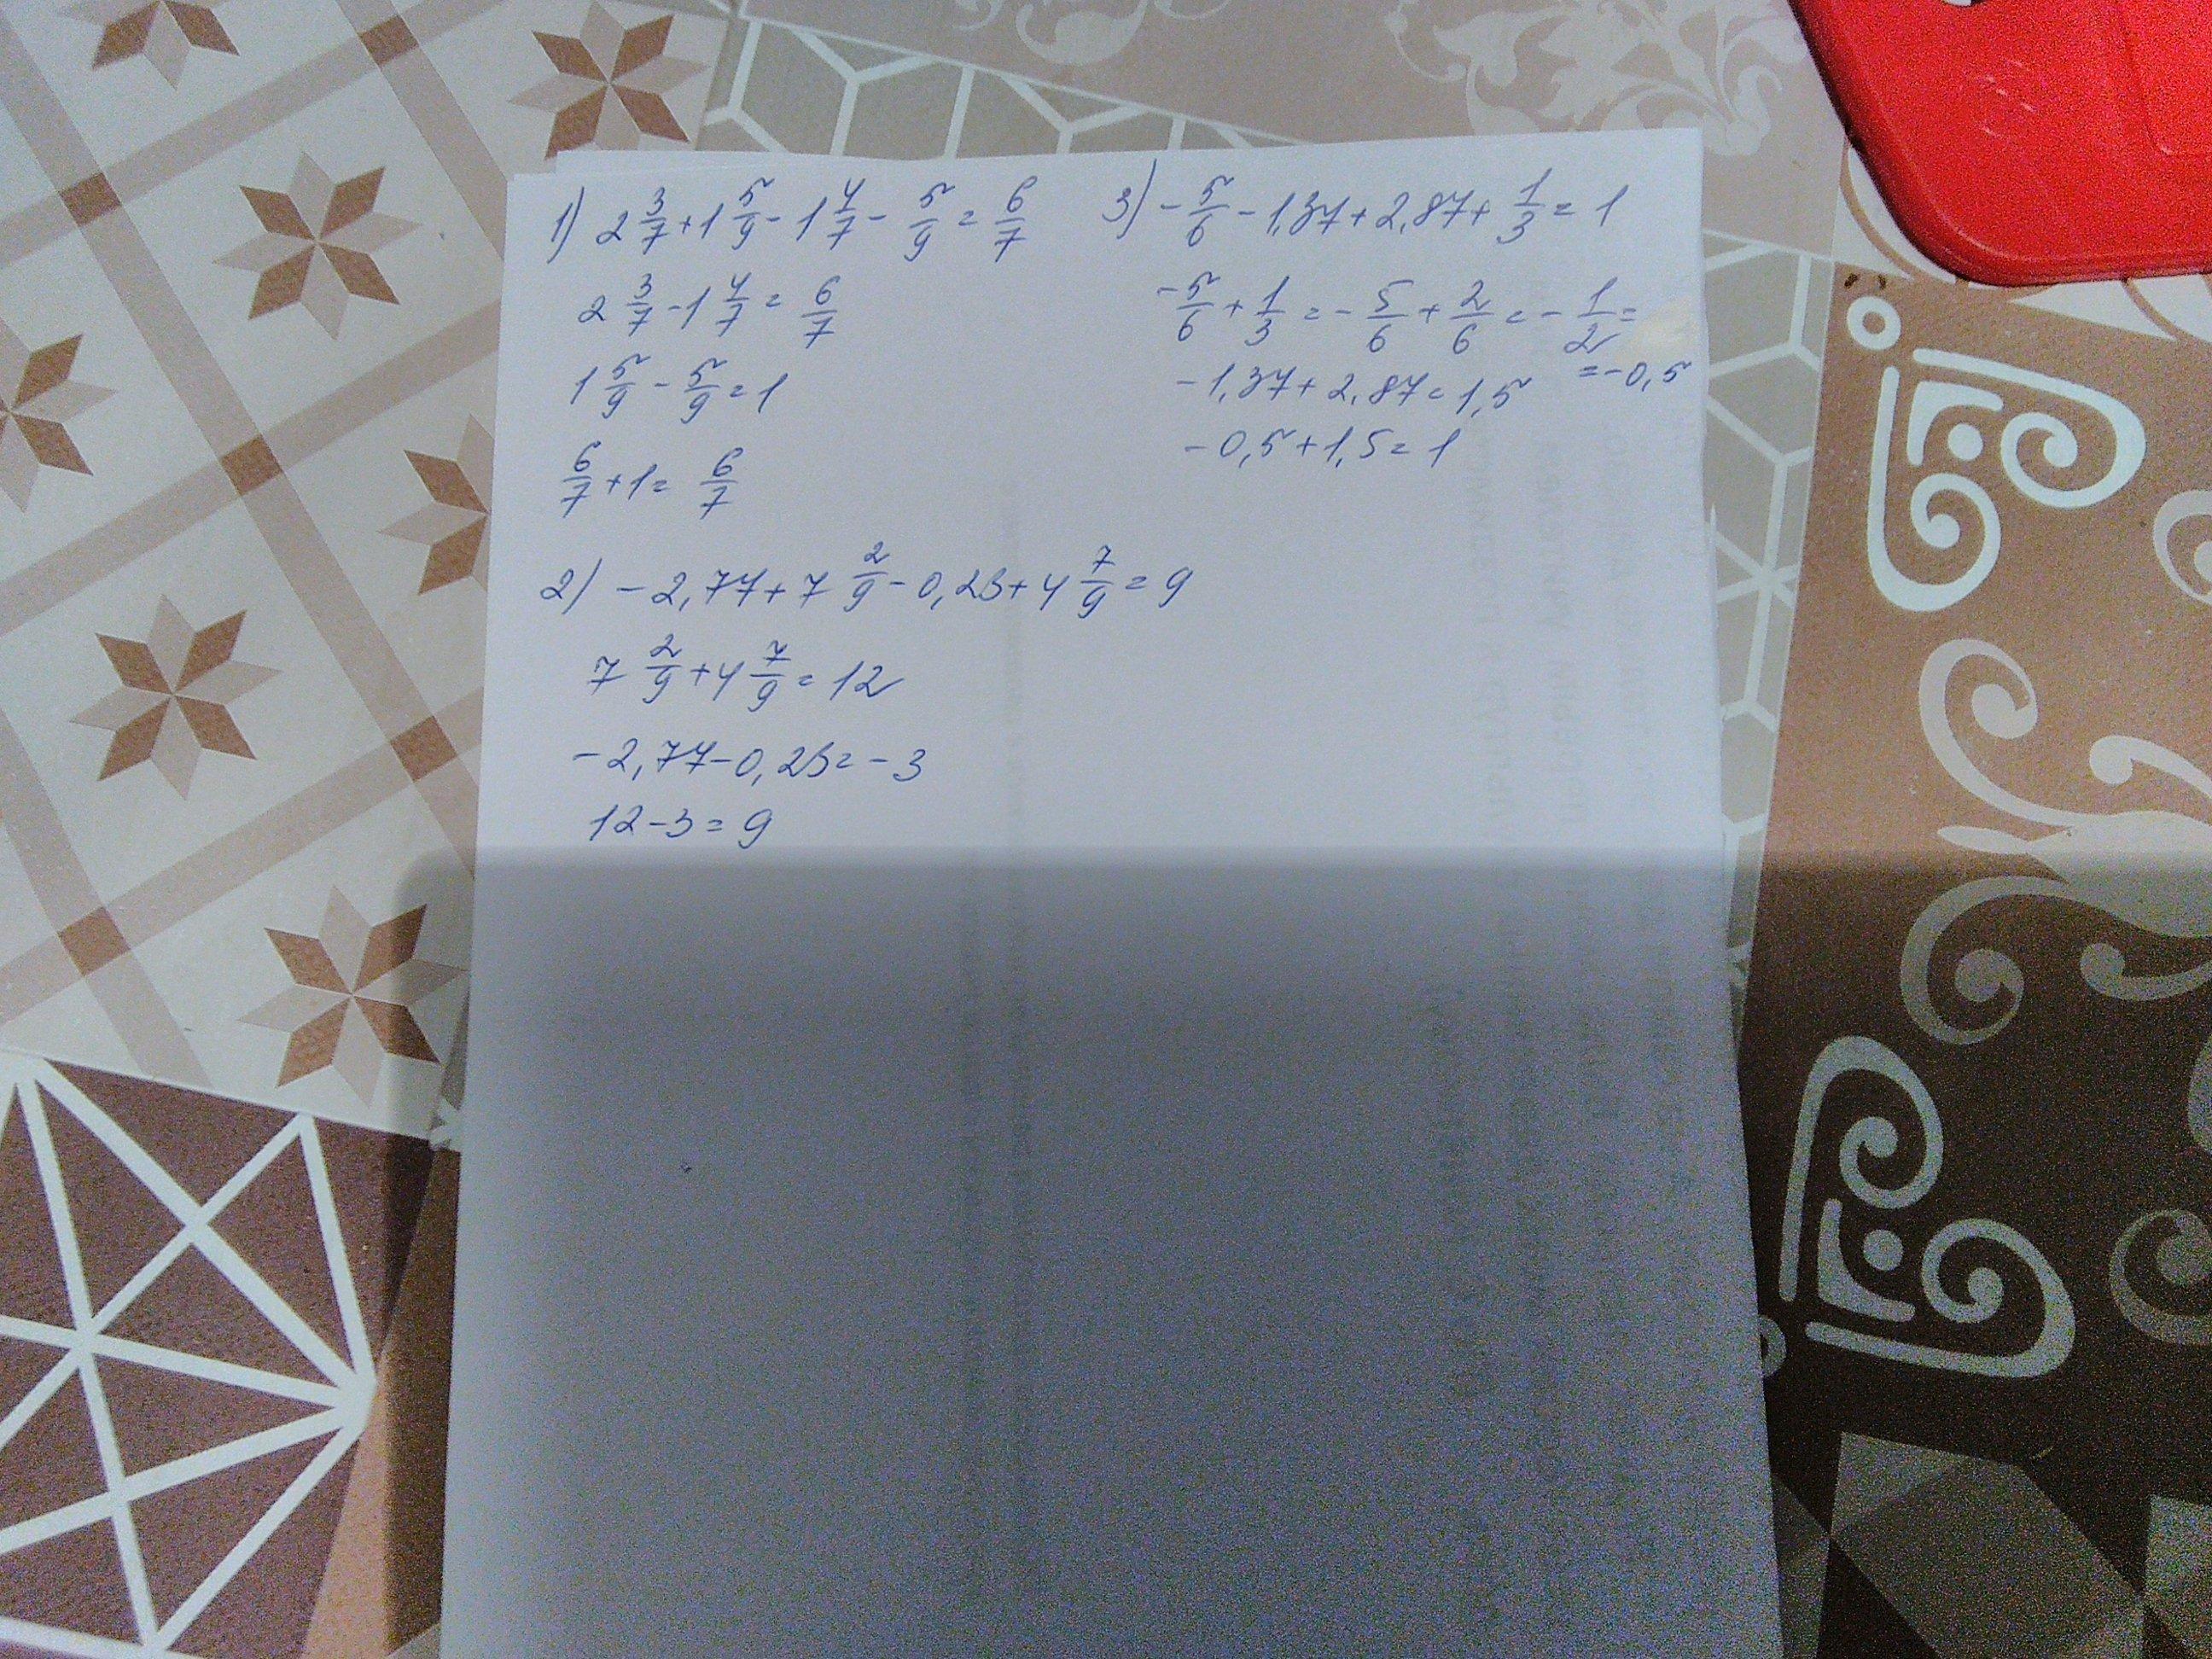 1) 2 3/7 + 1 5/9 - 1 4/7 - 5/9 = 6/7
2 3/7 - 1 4/7 = 6/7
1 5/9 - 5/9 = 1
6/7 + 1 = 6/7
2) - 2,77 + 7 2/9 - 0,23 + 4 7/9 = 9
7 2/9 + 4 7/9 = 12
- 2,77 - 0,23 = - 3
12 - 3 = 9
3) - 5/6 - 1,37 + 2,87 + 1/3 = 1
- 5/6 + 1/3 = - 5/6 + 2/6 = - 1/2 =
= - 0,5
- 1,37 + 2,87 = 1,5
- 0,5 + 1,5 = 1